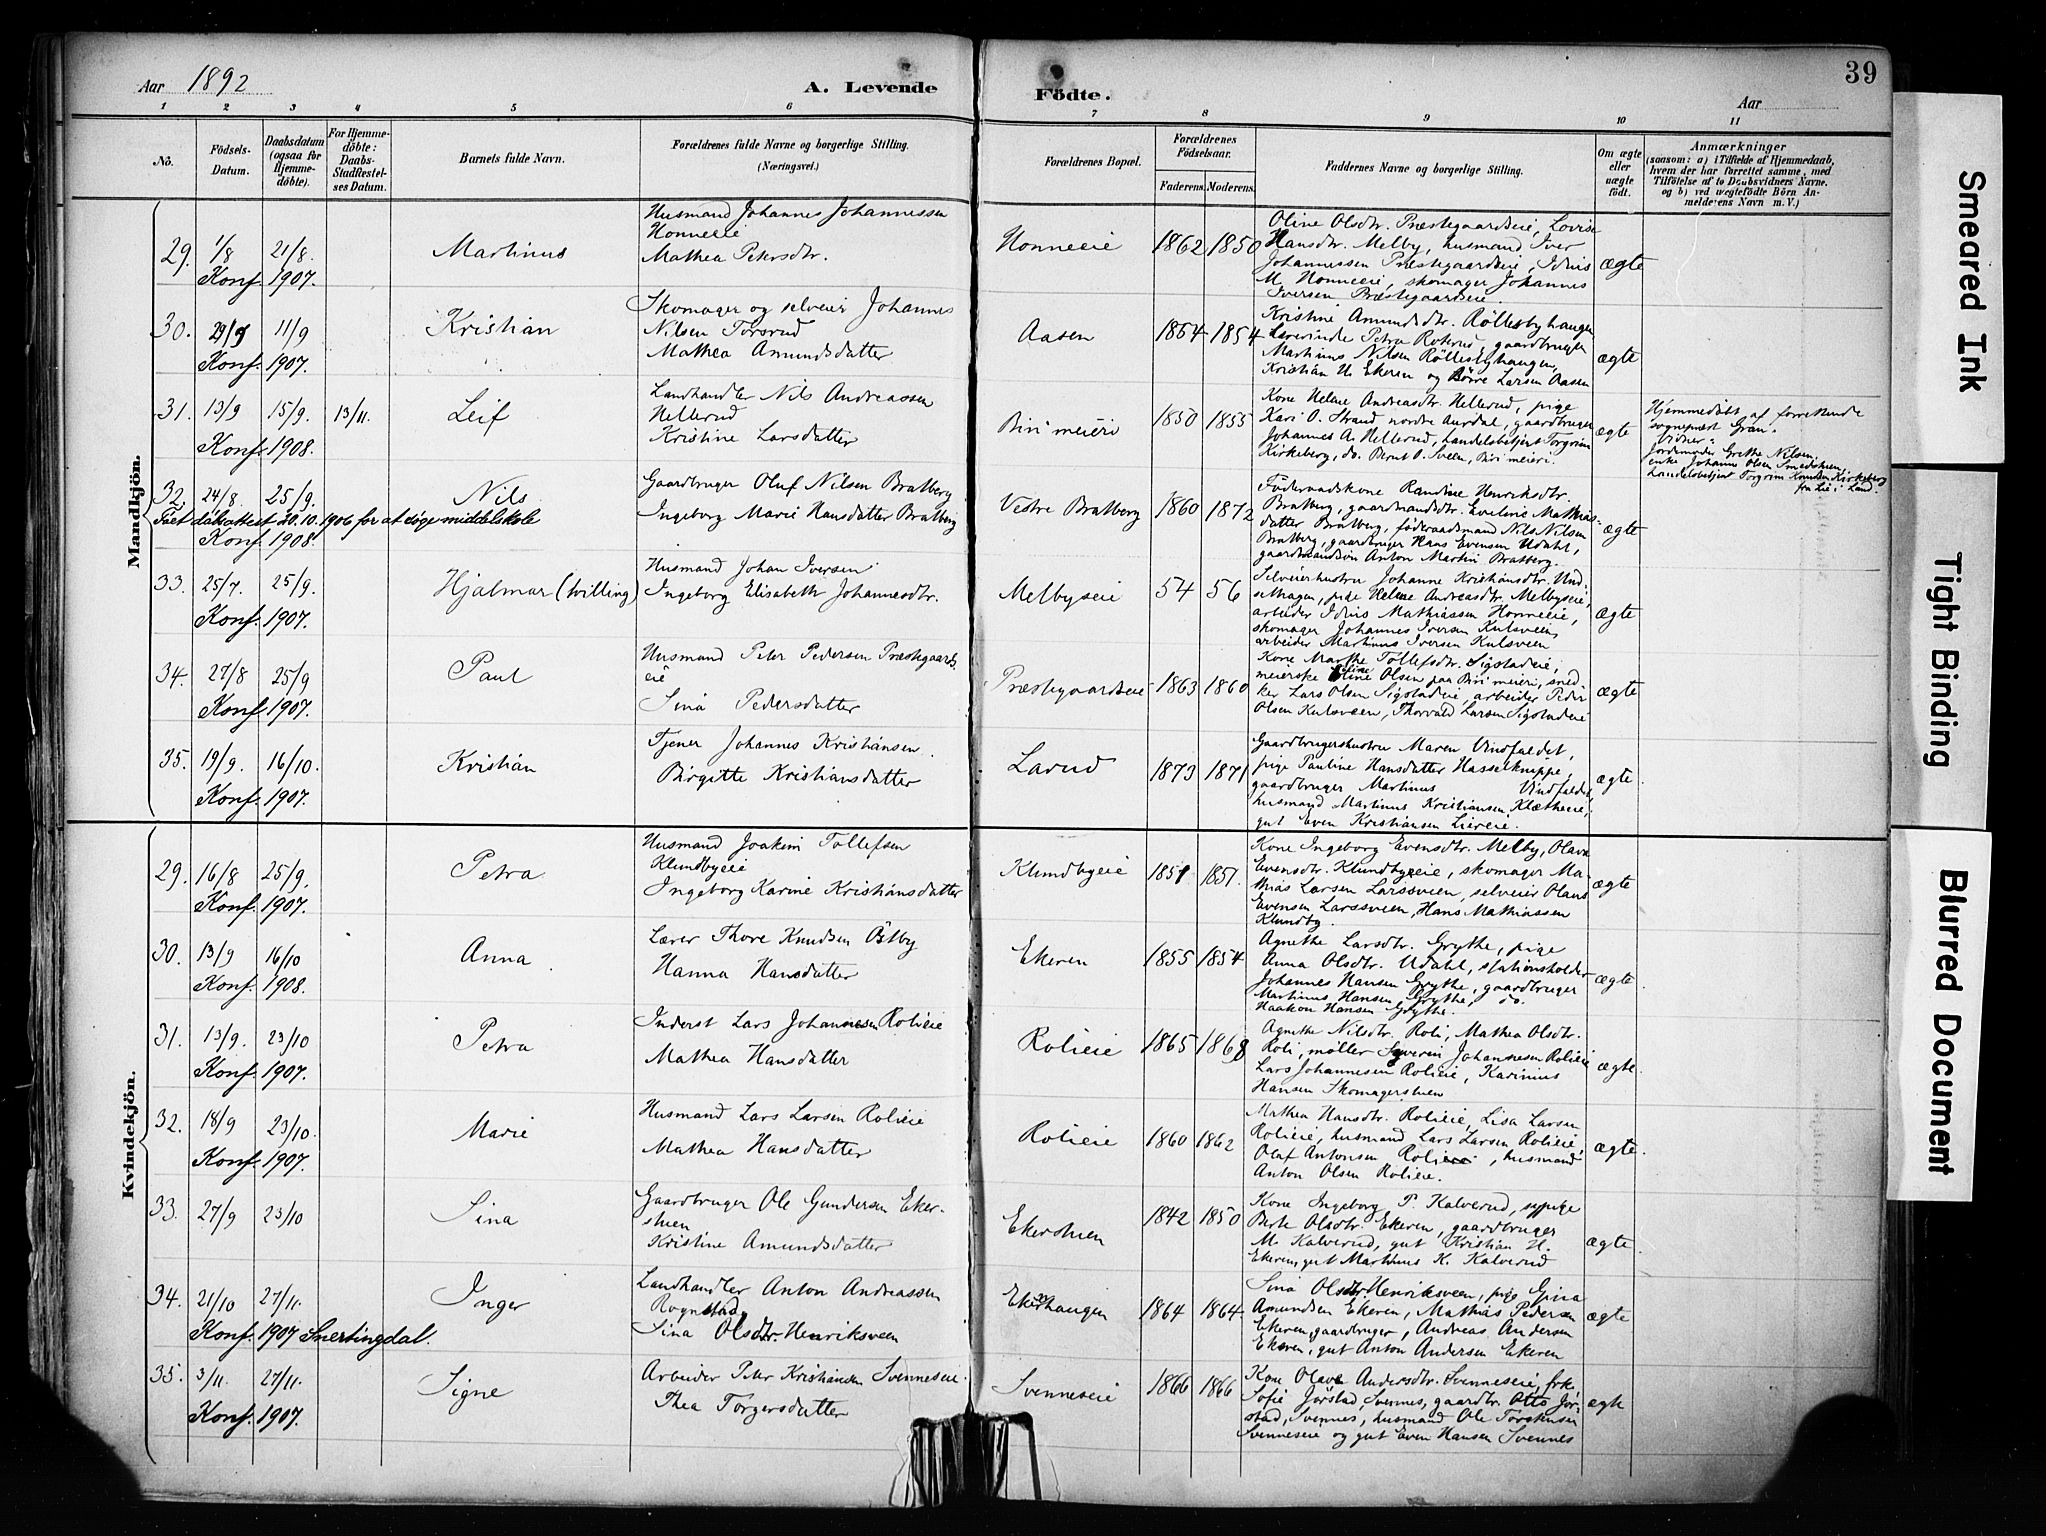 Aar 1892
A. Levende Födte.
Aar
39
1 2 3 4 5 6 7 8 9 10 11
No.
Födsels-Datum.
Daabsdatum (ogsaa for Hjemmedöbte).
For Hjemmedöbte: Daabs-Stadfestelses Datum.
Barnets fulde Navn.
Forældrenes fulde Navne og borgerlige Stilling. (Næringsvei.)
Forældrenes Bopæl.
Forældrenes Födselsaar.
Faderens. Moderens.
Faddernes Navne og borgerlige Stilling.
Om ægte eller uægte födt.
Anmærkninger
(saasom: a) i Tilfælde af Hjemmedaab,
hvem der har forrettet samme, med
Tilföielse af to Daabsvidners Navne.
og b) ved uægtefödte Börn An-
melderens Navn m. V.)
Mandkjön.
29. 1/8 21/8. Martinus
Konf. 1907.
Husmand Johannes Johannessen
Honneeie
Mathea Petersdtr.
Honneeie 1862 1850
Oline Olsdtr. Præstegaardseie, Lovise
Hansdtr. Melby, husmand Iver
Johannessen Præstegaardseie, Idris
M. Honneeie, skomager Johannes
Iversen Præstegaardseie.
ægte
30. 29/7 11/9 Kristian
Konf. 1907.
Skomager og selveier Johannes
Nilsen Torsrud
Mathea Amundsdatter
Aasen 1864 1854
Kristine Amundsdtr. Röllesbyhaugen
Lærerinde Petra Roterud, gaardbruger
Martinus Nilsen Röllesbyhaugen,
Kristian H. Ekeren og Börre Larsen Aasen
ægte
31. 13/9 15/9. 13/11. Leif
Konf. 1908.
Landhandler Nils Andreassen
Hellerud
Kristine Larsdatter
Biri meieri 1850 1855
Kone Helene Andreasdtr. Hellerud, pige
Kari O. Strand nordre Aurdal, gaardbruger
Johannes A. Hellerud, handelsbetjent Torgrim
Kirkeberg, do. Bernt O. Sveen, Biri meieri.
ægte
Hjemmedöbt af forrettende
sogneprest Gran.
Vidner:
Jordemoder Grethe Nilsen,
enke Johanne Olsen Smedstuen,
handelsbetjent Torgrim Knudsen Kirkeberg
fra Lie i Land.
32. 24/8. 25/9. Nils
Faet dåbattest 20.10.1906 for at søge middelskole
Konf. 1908.
Gaardbruger Oluf Nilsen Bratberg
Ingeborg Marie Hansdatter Bratberg
Vestre Bratberg 1860 1872
Föderaadskone Randine Henriksdtr.
Bratberg, gaardmandsdtr. Eveline Mathias-
datter Bratberg, föderaadsmand Nils Nilsen
Bratberg, gaardbruger Hans Evensen Udahl,
gaardmandsön Anton Martin Bratberg.
ægte
33. 25/7. 25/9. Hjalmar (tvilling)
Konf. 1907.
Husmand Johan Iversen
Ingeborg Elisabeth Johannesdtr.
Melbyseie 54 56
Selveierhustru Johanne Kristiansdtr. Und-
selhagen, pige Helene Andreasdtr. Melbyseie,
arbeider Idris Mathiassen Honneeie,
skomager Johannes Iversen Kulsveen,
arbeider Martinus Iversen Kulsveen
ægte
34. 27/8 25/9 Paul
Konf. 1907.
Husmand Peter Pedersen Præstegaards-
eie
Sina Pedersdatter
Præstegaardseie 1863 1860
Kone Marthe Tollefsdtr. Sigstadeie,
meierske Oline Olsen paa Biri meieri, sned-
ker Lars Olsen Sigstadeie, arbeider Peder
Olsen Kulsveen, Thorvald Larsen Sigstadeie
ægte
35. 19/9. 16/10. Kristian
Konf. 1907.
Tjener Johannes Kristiansen
Birgitte Kristiansdatter
Larud 1873 1871
Gaardbrugershustru Maren Vindfaldet,
pige Pauline Hansdatter Hasselknippe,
gaardbruger Martinus Vindfaldet,
husmand Martinus Kristiansen Klætheeie,
gut Even Kristiansen Lieeie.
ægte
Kvindekjön.
29. 16/8 25/9. Petra
Konf. 1907.
Husmand Joakim Tollefsen
Klundbyeie
Ingeborg Karine Kristiansdatter
Klundbyeie 1851 1851.
Kone Ingeborg Evensdtr. Melby, Olava
Evensdtr. Klundbyeie, skomager Ma-
thias Larsen Larssveen, selveier Olaus
Evensen Larssveen, Hans Mathiassen
Klundby.
ægte
30. 13/9 16/10 Anna
Konf. 1908.
Lærer Thore Knudsen Östby
Hanna Hansdatter
Ekeren 1855 1854
Agnethe Larsdtr. Grythe, pige
Anna Olsdtr. Udahl, stationsholder
Johannes Hansen Grythe, gaardbruger
Martinus Hansen Grythe, do.
Haakon Hansen Grythe.
ægte
31. 13/9. 23/10 Petra
Konf. 1907.
Inderst Lars Johannesen Rolieie
Mathea Hansdatter
Rolieie 1865 1868
Agnethe Nilsdtr. Roli, Mathea Olsdtr.
Roli, møller Severin Johannesen Rolieie
Lars Johannesen Rolieie, Karinius
Hansen Skomagerstuen
ægte
32. 18/9 23/10. Marie
Konf. 1907.
Husmand Lars Larsen Rolieie
Mathea Hansdatter
Rolieie 1860 1862
Mathea Hansdtr. Rolieie, Lisa Larsen
Rolieie, husmand Lars Larsen Rolieie,
Olaf Antonsen Rolieie, husmand
Anton Olsen Rolieie.
ægte.
33. 27/9 23/10 Sina
Gaardbruger Ole Gundersen Eker-
stuen
Kristine Amundsdatter
Ekerstuen 1842 1850
Kone Ingeborg P. Kalverud, sypige
Berte Olsdtr. Ekeren, gaardbruger
M. Kalverud, gut Kristian H.
Ekeren, gut Martinus K. Kalverud
ægte.
34. 21/10 27/11. Inger
Konf. 1907 Snertingdal.
Landhandler Anton Andreassen
Rognstad
Sina Olsdtr. Henriksveen
Ekernhaugen 1864 1864.
Sina Olsdtr Henriksveen, pige Gina
Amundsen Ekeren, Mathias Pedersen
Ekeren, gaardbruger, Andreas Andersen
Ekeren, gut Anton Andersen Ekeren
ægte
35. 3/11. 27/11. Signe
Konf. 1907.
Arbeider Peter Kristiansen Svenneseie.
Thea Torgersdatter
Svenneseie 1866 1866
Kone Olava Andersdtr. Svenneseie, frk.
Sofie Jørstad Svennes, gaardbr. Otto Jör-
stad, Svennes, husmand Ole Torstensen
Svenneseie og gut Even Hansen Svennes
ægte
Smeared Ink
Tight Binding
Blurred Document